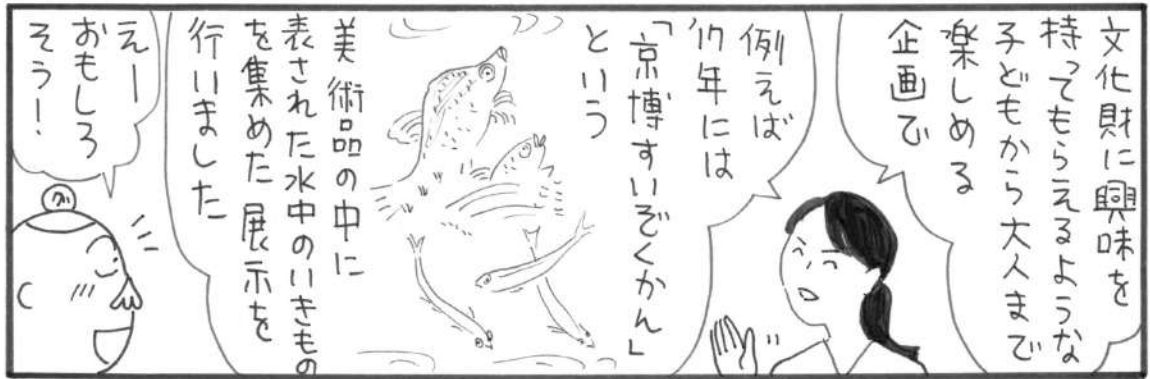 文化財に興味を
持ってもらえるような
子どもから大人まで
楽しめる
企画で
例えば
'17年には
「京博すいぞくかん」
という
美術品の中に
表された水中のいきもの
を集めた展示を
行いました
えー
おもしろ
そう!